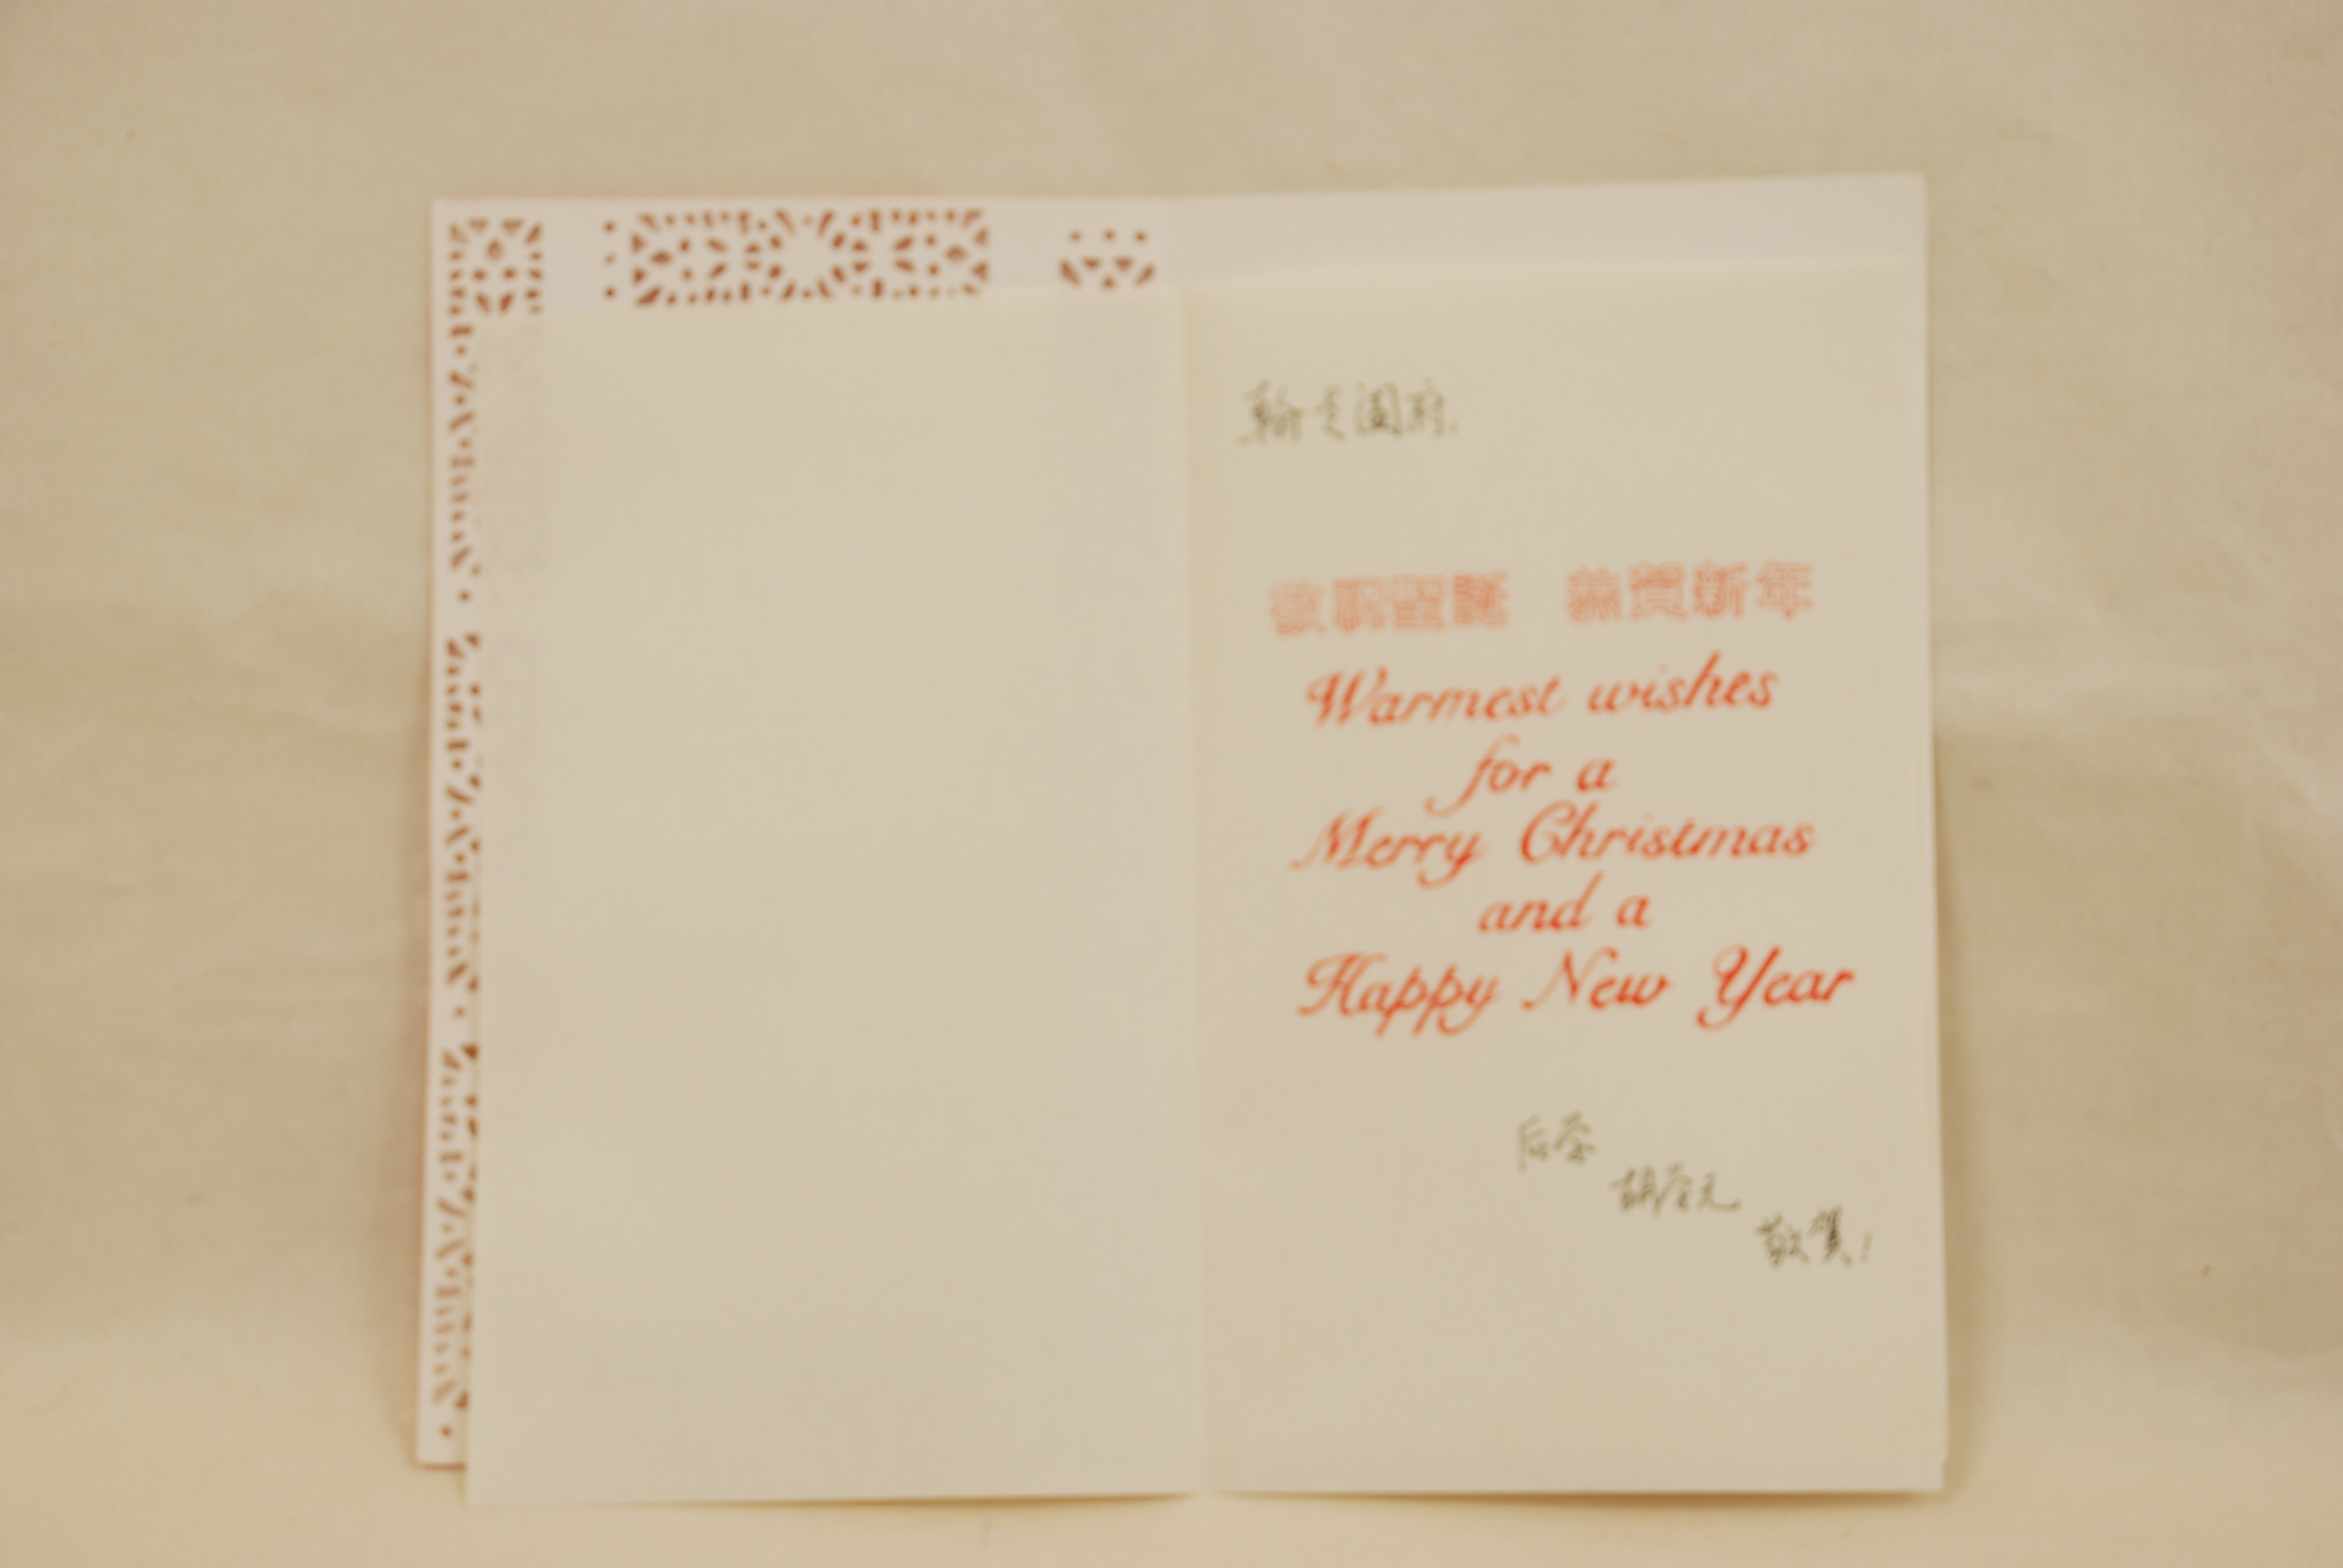 敬祝聖誕 恭賀新年
Warmest wishes
for a
Merry Christmas
and a
Happy New Year
敬賀!